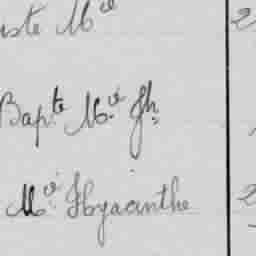 iste M.ie
Bap.te M.ie Jh
M.ie Hyacinthe